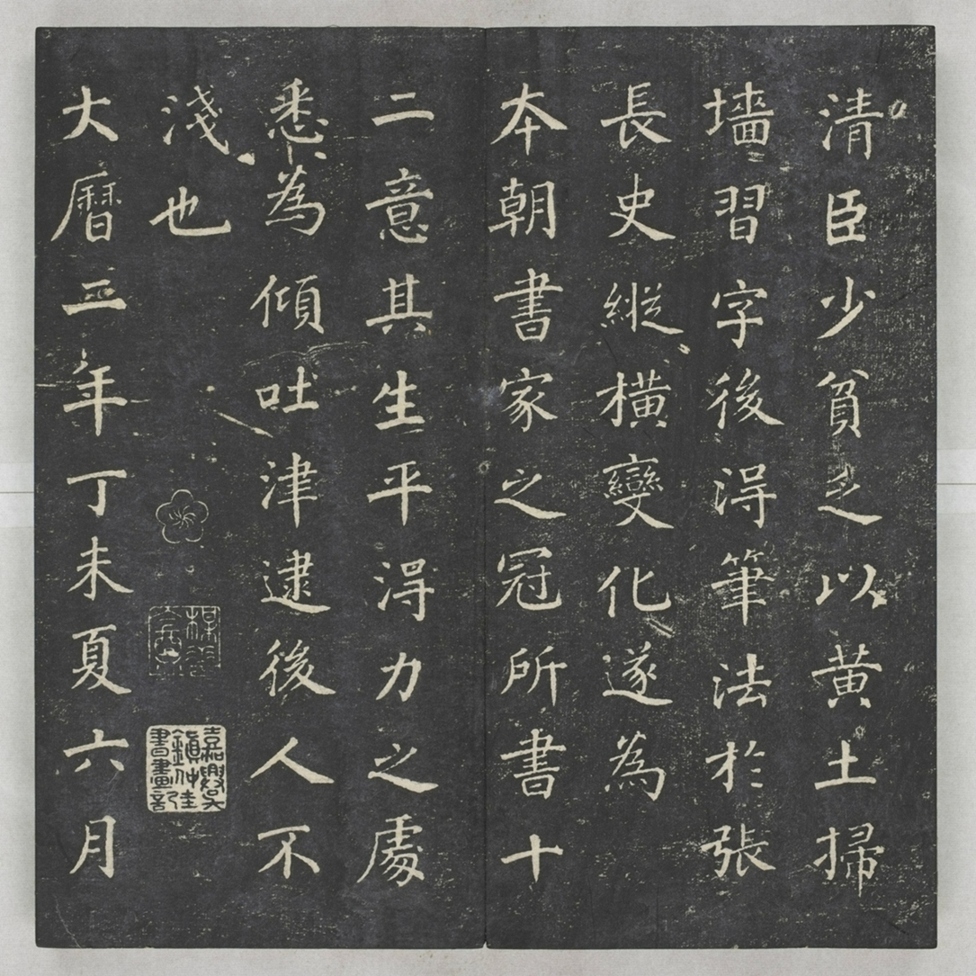 清臣少貧乏以黃土掃
墻習字後淂筆法於張
長史縱橫變化遂為
本朝書家之冠所書十
二意其生平淂力之處
悉為傾吐津逮後人不
淺也
大曆三年丁未夏六月